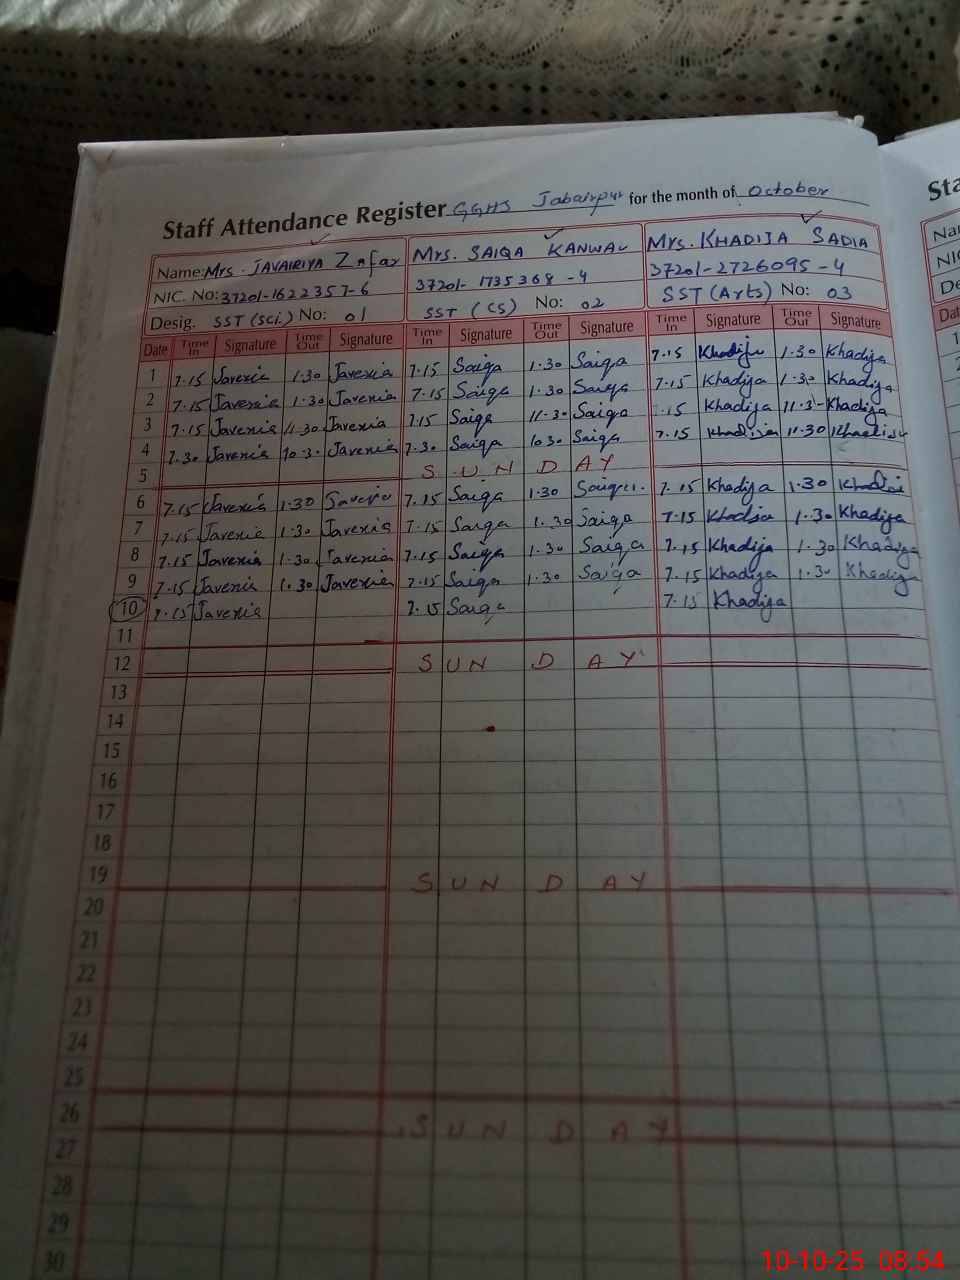 Staff Attendance Register GGHS Jabairpur for the month of October
Name: Mrs. JAVAIRIYA Zafar Mrs. SAIQA KANWAL Mrs. KHADIJA SADIA
NIC. No: 37201-1622357-6 37201-1735368-4 37201-2726095-4
Desig. SST (Sci.) No: 01 SST (CS) No: 02 SST (Arts) No: 03
Date Time In Signature Time Out Signature Time In Signature Time Out Signature Time In Signature Time Out Signature
1 7.15 Javeria 1.30 Javeria 7.15 Saiqa 1.30 Saiqa 7.15 Khadija 1.30 Khadija
2 7.15 Javeria 1.30 Javeria 7.15 Saiqa 1.30 Saiqa 7.15 Khadija 1.30 Khadija
3 7.15 Javeria 11.30 Javeria 7.15 Saiqa 11.30 Saiqa .15 Khadija 11.3- Khadija
4 7.30 Javeria 10.30 Javeria 7.30 Saiqa 10.30 Saiqa 7.15 Khadija 11.30 Khadija
5 SUNDAY
6 7.15 Javeria 1.30 Javeria 7.15 Saiqa 1.30 Saiqa 7.15 Khadija 1.30
7 7.15 Javeria 1.30 Javeria 7.15 Saiqa 1.30 Saiqa 7.15 Khadija 1.30 Khadija
8 7.15 Javeria 1.30 Javeria 7.15 Saiqa 1.30 Saiqa 7.15 Khadija 1.30 Khadija
9 7.15 Javeria 1.30 Javeria 7.15 Saiqa 1.30 Saiqa 7.15 Khadija 1.30 Khadija
10 7.15 Javeria 7.15 Saiqa 7.15 Khadija
11
12 SUNDAY
13
14
15
16
17
18
19 SUNDAY
20
21
22
23
24
25
26 SUNDAY
27
28
29
30
Sta
Nar
NIC
De
Dat
1
10-10-25 08:54